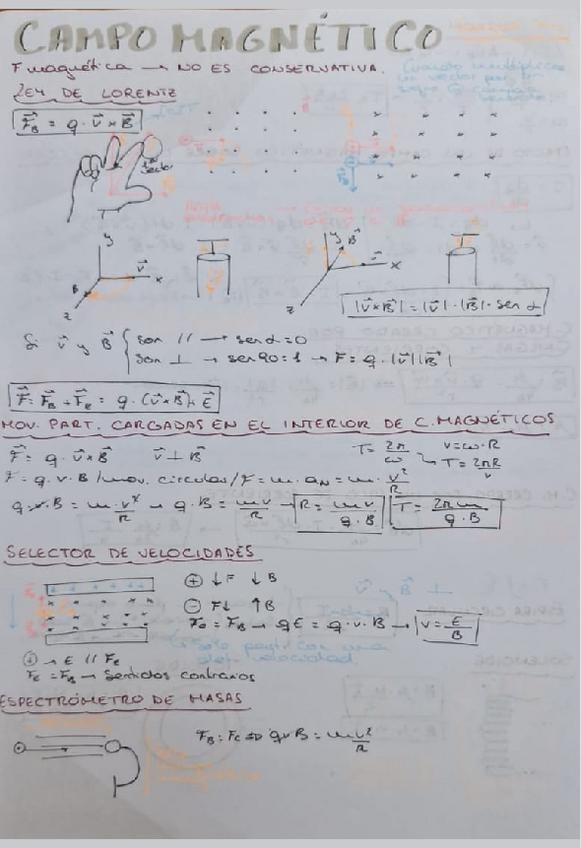 CAMPO MAGNÉTICO
F magnética → NO ES CONSERVATIVA.
LEY DE LORENTZ
F⃗_B = q · v⃗ × B⃗
y
v⃗
x
B
z
y
B⃗
x
z
|v⃗×B⃗| = |v⃗| · |B⃗| · sen α
Si v⃗ y B⃗ { son // → sen α = 0
son ⊥ → sen 90 = 1 → F = q · |v⃗| |B⃗|
F⃗ = F⃗_B + F⃗_e = q · (v⃗×B⃗) + E⃗
MOV. PART. CARGADAS EN EL INTERIOR DE C. MAGNÉTICOS
F⃗ = q · v⃗ × B⃗ v⃗ ⊥ B⃗ T = 2π/ω v = ω · R
T = 2πR/v
F = q · v · B / mov. circular / F = m · a_N = m · v²/R
q · v · B = m · v²/R → q · B = mv/R → R = mv/(q · B) T = 2πm/(q · B)
SELECTOR DE VELOCIDADES
⊕ ↓F ↓B
⊖ F↓ ↑B
F_e = F_B → qE = q · v · B → v = E/B
Solo para q con una
velocidad
⊕ → E // F_E
F_E = F_B → Sentidos contrarios
ESPECTRÓMETRO DE MASAS
F_B = F_C ⇒ qvB = m v²/R